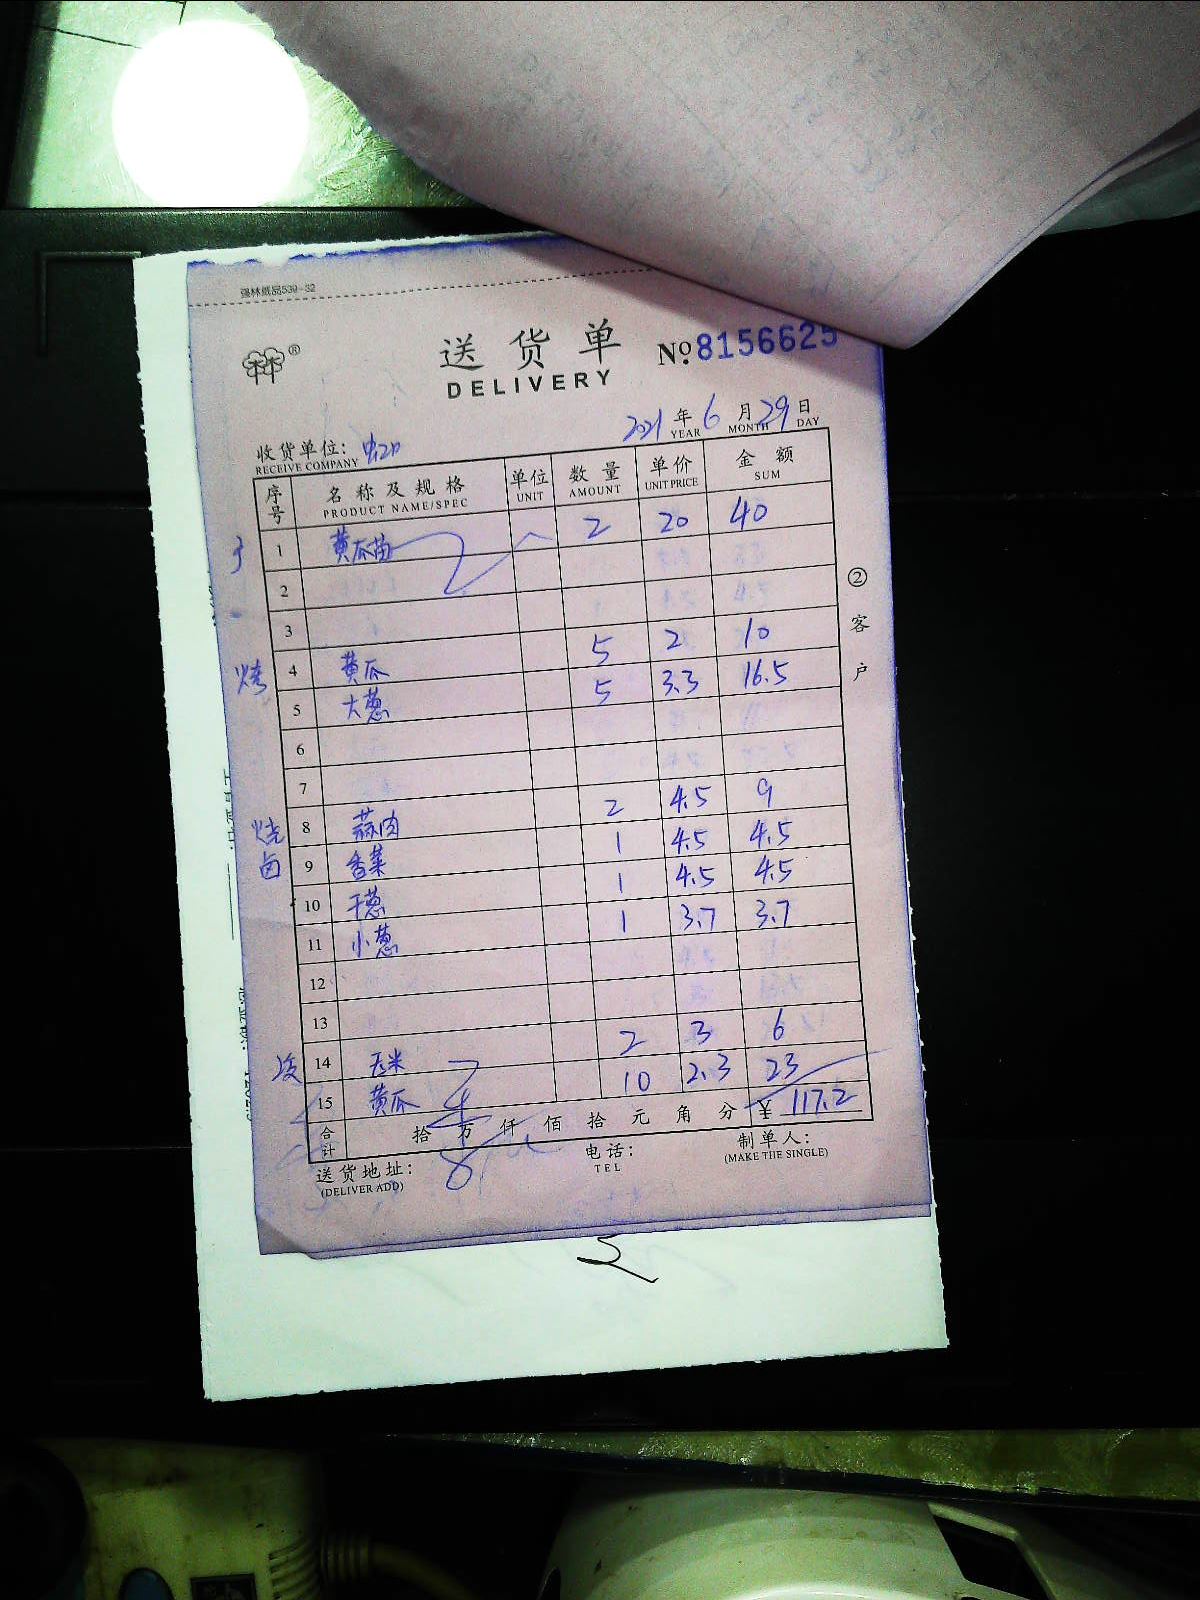 强林纸品539-32
®
送货单 №8156625
DELIVERY
2021年6月29日
YEAR MONTH DAY
收货单位:
RECEIVE COMPANY
序号 名称及规格 单位 数量 单价 金额
PRODUCT NAME/SPEC UNIT AMOUNT UNIT PRICE SUM
1 黄瓜苗 2 20 40
2
3
烤 4 黄瓜 5 2 10
5 大葱 5 3.3 16.5
6
7
烧卤 8 蒜肉 2 4.5 9
9 香菜 1 4.5 4.5
10 干葱 1 4.5 4.5
11 小葱 1 3.7 3.7
12
13
14 玉米 2 3 6
15 黄瓜 10 2.3 23
合计 拾万仟佰拾元角分 ¥ 117.2
送货地址: 电话: 制单人:
(DELIVER ADD) TEL (MAKE THE SINGLE)
②客户